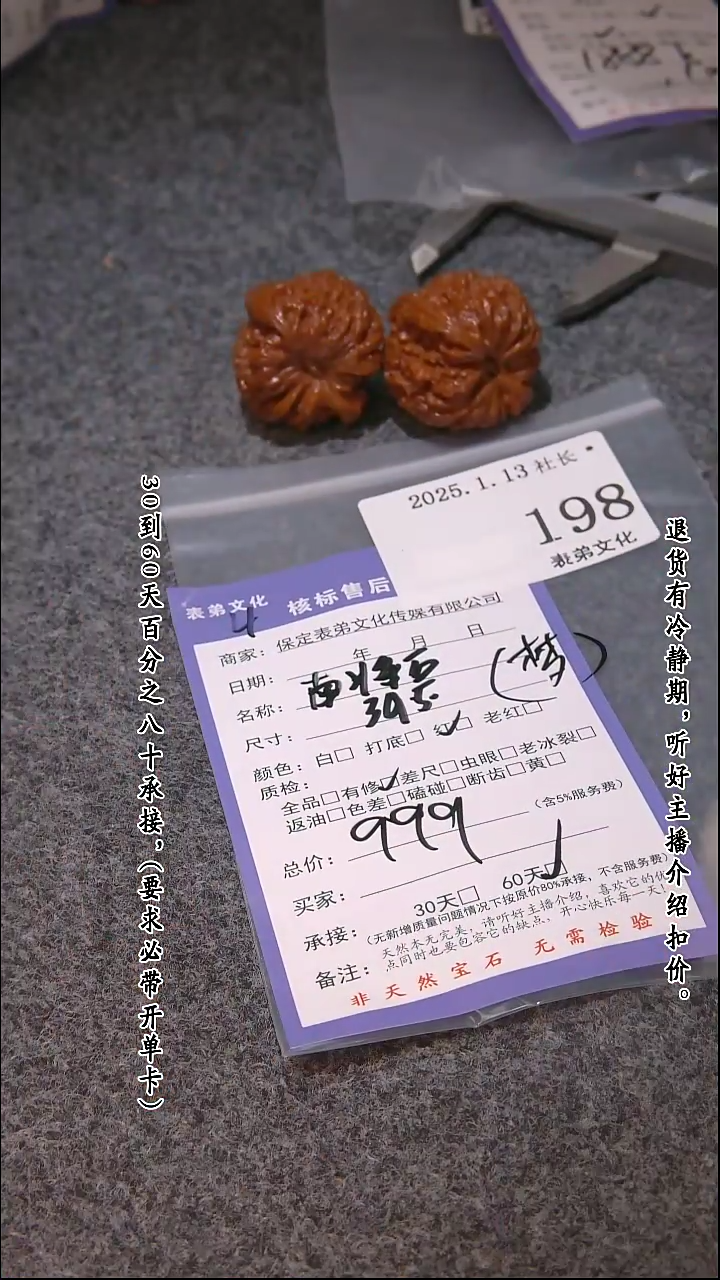 2025.1.13 社长
198
表弟文化
表弟文化 核标售后
商家：保定表弟文化传媒有限公司
日期： 年 月 日
名称：
尺寸：
39.5
颜色：白□ 打底□ 红☑ 老红□
质检：全品□有修☑差尺□虫眼□老冰裂□
返油□色差□磕碰□断齿□黄□
总价：999 （含5%服务费）
买家：
承接：30天□ 60天☑
（无新增质量问题情况下按原价80%承接，不含服务费）
备注：天然本无完美，请听好主播介绍，喜欢它的优
点同时也要包容它的缺点，开心快乐每一天！
非天然宝石 无需检验
退货有冷静期，听好主播介绍扣价。
30到60天百分之八十承接，（要求必带开单卡）